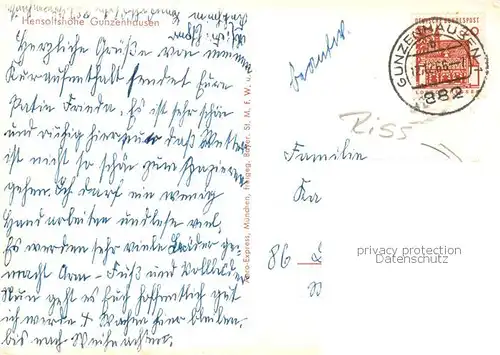 Hensoltshöhe Gunzenhausen
Herzliche Grüße von meinem
Kuraufenthalt sendet Eure
Patin Frieda. Es ist sehr schön
und richtig hier nur daß Wetter
ist nicht so schön zum Spazieren
gehen. Ich darf ein wenig
Handarbeiten und lese viel.
Es werden sehr viele Bäder ge-
macht Arm- Fuß und Vollbäder
Nun geht es Euch hoffentlich gut
ich werde 4 Wochen hier bleiben,
bis nach Weihnachten.
Aero-Express, München, Freigeg. Bayer. St. M. F. W. u.
DEUTSCHE BUNDESPOST
GUNZENHAUSEN
882
Riss
Familie
Ka
86
privacy protection
Datenschutz